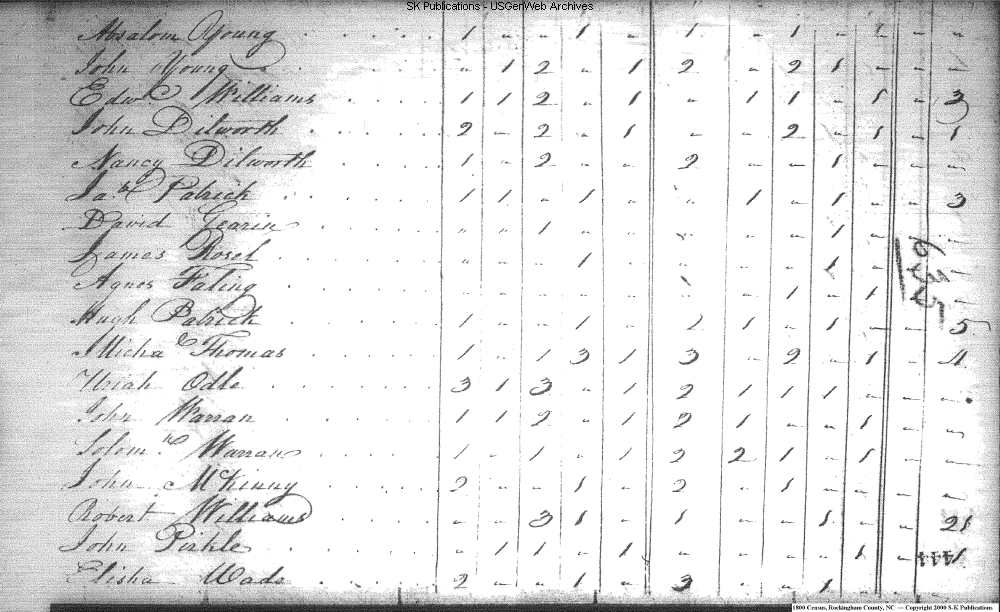 SK Publications - USGenWeb Archives
Absalom Young 1 - - 1 - 1 - 1 - 1 - -
John Young - 1 2 - 1 2 - 2 1 - - -
Edwd Williams 1 1 2 - 1 - 1 1 - 1 - 3
John Dilworth 2 - 2 - 1 - - 2 - 1 - 1
Nancy Dilworth 1 - 2 - - 2 - - 1 - - -
Jas Patrick 1 1 - 1 - - 1 - 1 - - 3
David Gearin " " 1 - - - - - 1 - -
James Rosel - - - 1 - - - - 1 - -
Agnes Faling - - - - - 1 - 1 - 1 -
Hugh Patrick 1 - - 1 - 2 1 - 1 - - 5
Michae Thomas 1 - 1 3 1 3 - 2 - 1 - 4
Uriah Odle 3 1 3 - 1 2 1 1 1 - - -
John Warran 1 1 2 - 1 3 1 - - 1 - -
Solomn Warran 1 - 1 - 1 2 2 1 - 1 - -
John McKinny 2 - - 1 - 2 - 1 - - - -
Robert Williams - - 3 1 - 1 - - 1 - - 21
John Pirkle - 1 1 - 1 - - - - 1
Elisha Wade 2 - - 1 - 3 - - 1 - - -
1800 Census, Rockingham County, NC — Copyright 2000 S-K Publications